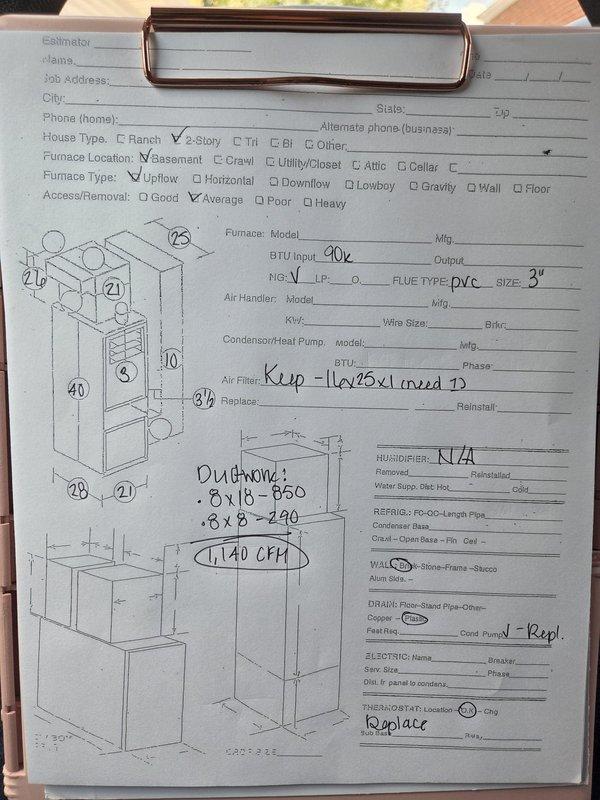 Estimator
Name:
Date / /
Job Address:
City: State: Zip
Phone (home): Alternate phone (business):
House Type. ☐ Ranch ☑ 2-Story ☐ Tri ☐ Bi ☐ Other:
Furnace Location: ☑ Basement ☐ Crawl ☐ Utility/Closet ☐ Attic ☐ Cellar ☐
Furnace Type: ☑ Upflow ☐ Horizontal ☐ Downflow ☐ Lowboy ☐ Gravity ☐ Wall ☐ Floor
Access/Removal: ☐ Good ☑ Average ☐ Poor ☐ Heavy
25
26
21
8
10
40
3½
28
21
Furnace: Model Mfg.
BTU Input 90k Output
NG: √ LP: O. FLUE TYPE: pvc SIZE: 3"
Air Handler: Model Mfg.
KW: Wire Size: Brkr:
Condensor/Heat Pump. Model: Mfg.
BTU: Phase:
Air Filter: Keep - 16x25x1 (need 1)
Replace: Reinstall:
Ductwork:
• 8x18 - 850
• 8x8 - 290
1,140 CFM
HUMIDIFIER: N/A
Removed Reinstalled
Water Supp. Dist: Hot Cold
REFRIG.: PC-QC-Length Pipe
Condenser Base
Crawl – Open Base – Fin Ceil –
WALL: Brick-Stone-Frame-Stucco
Alum Side. –
DRAIN: Floor-Stand Pipe-Other-
Copper – Plastic
Feet Req. Cond Pump √ - Repl.
ELECTRIC: Name Breaker
Serv. Size Phase
Dist. fr panel to condens.
THERMOSTAT: Location – O.K – Chg
Replace
Sub Base